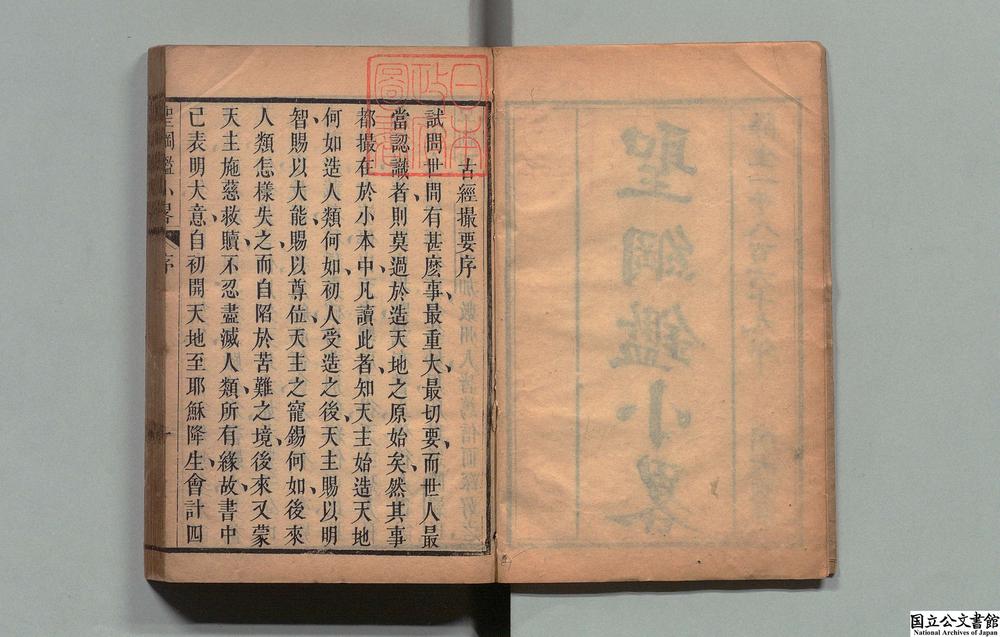 聖綱鑑小畧
日本政府圖書
古經撮要序
試問世間有甚麽事最重大最切要、而世人最
當認識者、則莫過於造天地之原始矣、然其事
都撮在於小本中、凡讀此者知天主始造天地
何如、造人類何如、初人受造之後、天主賜以明
智、賜以大能、賜以尊位、天主之寵錫何如、後來
人類怎樣失之、而自陷於苦難之境、後來又蒙
天主施慈救贖、不忍盡滅人類所有緣故、書中
已表明大意、自初開天地至耶穌降生、會計四
聖綱鑑小畧 序 一
国立公文書館
National Archives of Japan